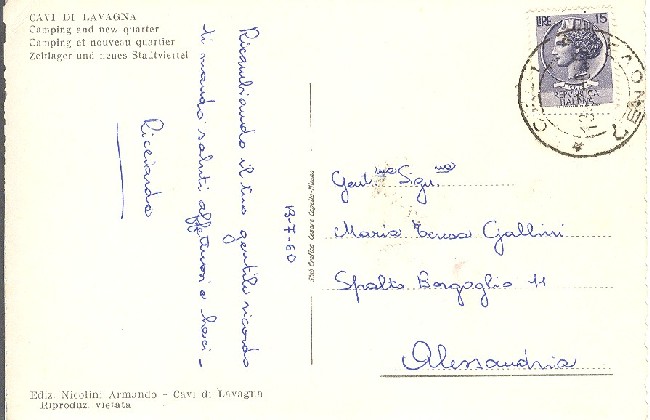 CAVI DI LAVAGNA
Camping and new quarter
Camping et nouveau quartier
Zeltlager und neues Stadtviertel
LIRE 15
Ricambiando il tuo gentile ricordo
ti mando saluti affettuosi e baci-
Ricciarda
13-7-60
Gent.ma Sigu.na
Maria Teresa Gallini
Spalto Borgoglio 11
Alessandria
Ediz. Nicolini Armando - Cavi di Lavagna
Riproduz. vietata